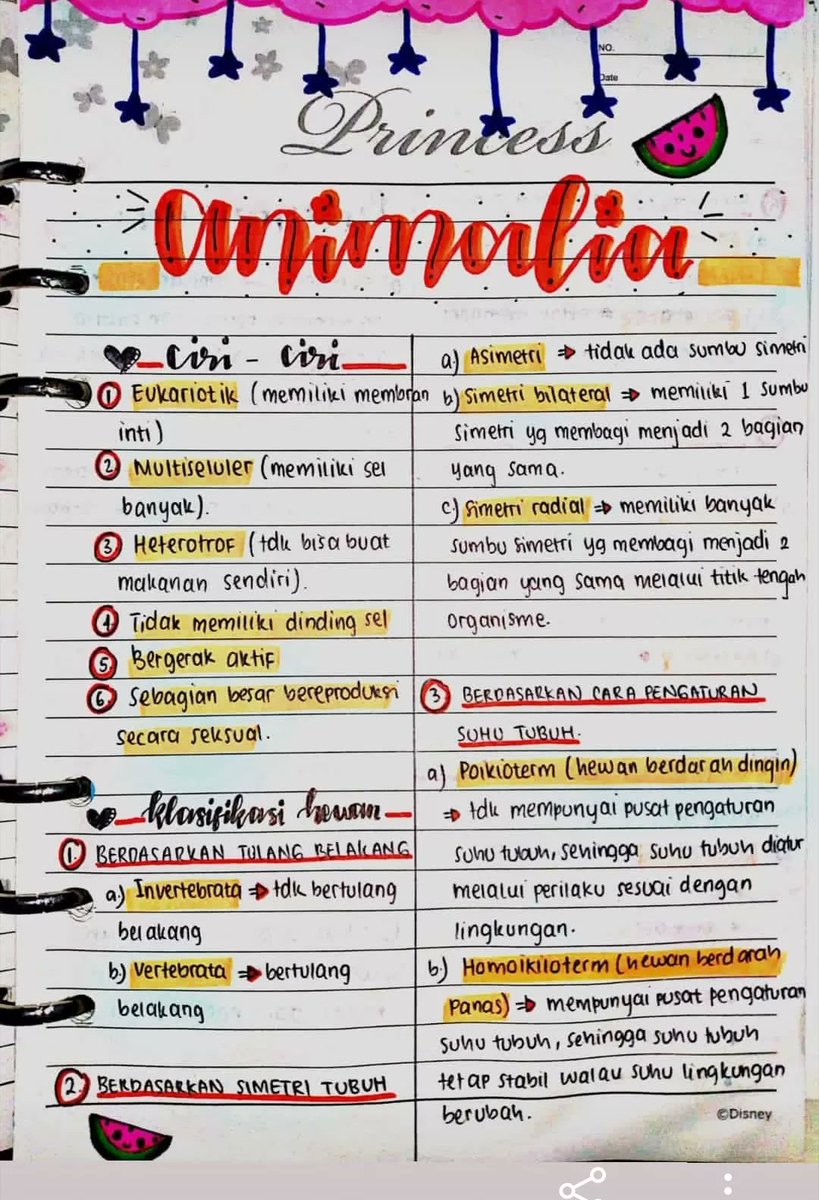 NO.
Date
Princess
animalia
ciri - ciri
1 Eukariotik (memiliki membran
inti)
2 Multiseluler (memiliki sel
banyak).
3 Heterotrof (tdk bisa buat
makanan sendiri).
4 Tidak memiliki dinding sel
5. Bergerak aktif
6. Sebagian besar bereproduksi
secara seksual.
klasifikasi hewan
1. BERDASARKAN TULANG BELAKANG
a) Invertebrata ⇒ tdk bertulang
belakang
b) Vertebrata ⇒ bertulang
belakang
2. BERDASARKAN SIMETRI TUBUH
a) Asimetri ⇒ tidak ada sumbu simetri
b) Simetri bilateral ⇒ memiliki 1 sumbu
simetri yg membagi menjadi 2 bagian
yang sama.
c) Simetri radial ⇒ memiliki banyak
sumbu simetri yg membagi menjadi 2
bagian yang sama melalui titik tengah
organisme.
3 BERDASARKAN CARA PENGATURAN
SUHU TUBUH.
a) Poikioterm (hewan berdarah dingin)
⇒ tdk mempunyai pusat pengaturan
suhu tubuh, sehingga suhu tubuh diatur
melalui perilaku sesuai dengan
lingkungan.
b) Homoikiloterm (hewan berdarah
panas) ⇒ mempunyai pusat pengaturan
suhu tubuh, sehingga suhu tubuh
tetap stabil walau suhu lingkungan
berubah.
©Disney